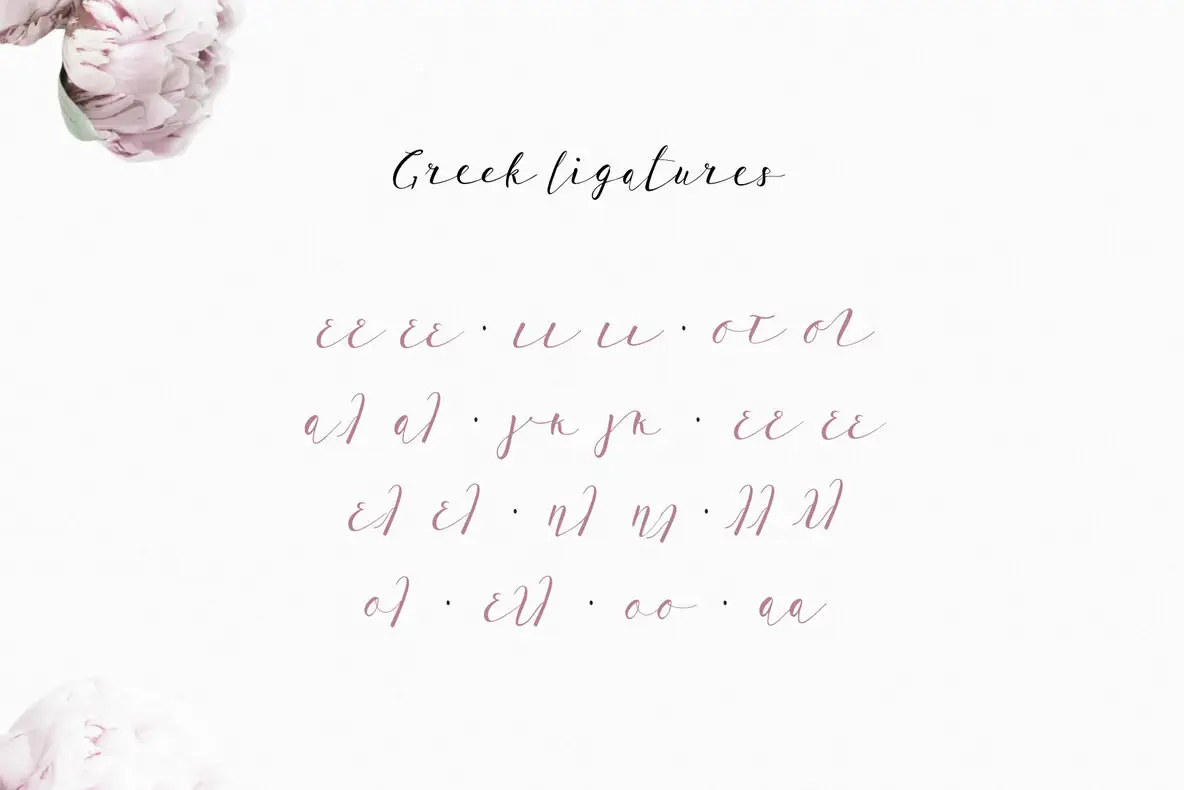 Greek ligatures
εε εε · ιι ιι · οτ ολ
αλ αλ · γκ γκ · εε εε
ελ ελ · ηλ ηλ · λλ λλ
ολ · ελλ · οο · αα